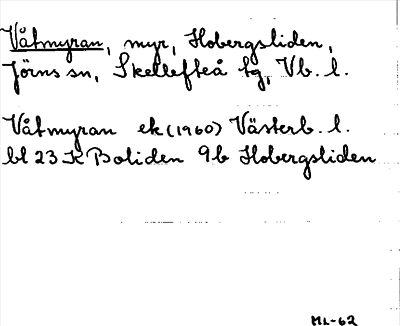 Våtmyran, myr, Hobergsliden,
Jörns sn, Skellefteå tg, Vb. l.
Våtmyran ek (1960) Västerb. l.
bl 23 K Boliden 9b Hobergsliden
ML-62